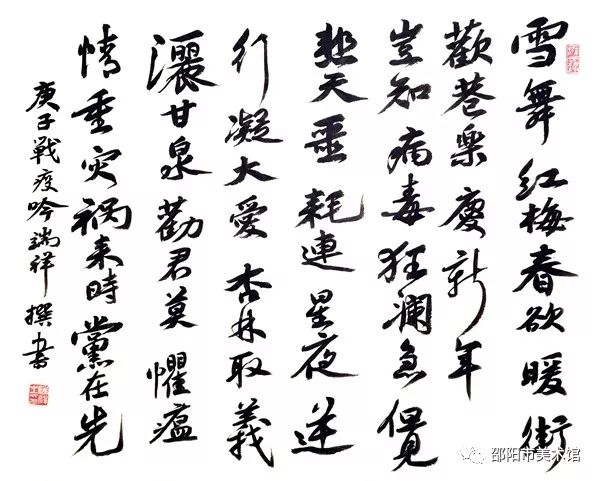 雪舞红梅春欲暖街
歡巷樂慶新年
豈知病毒狂澜急
天噩耗連星夜逆
行凝大愛杏林取義
灑甘泉勸君莫懼瘟
情重灾祸来時黨在先
庚子戰疫吟端祥撰書
邵阳市美术馆